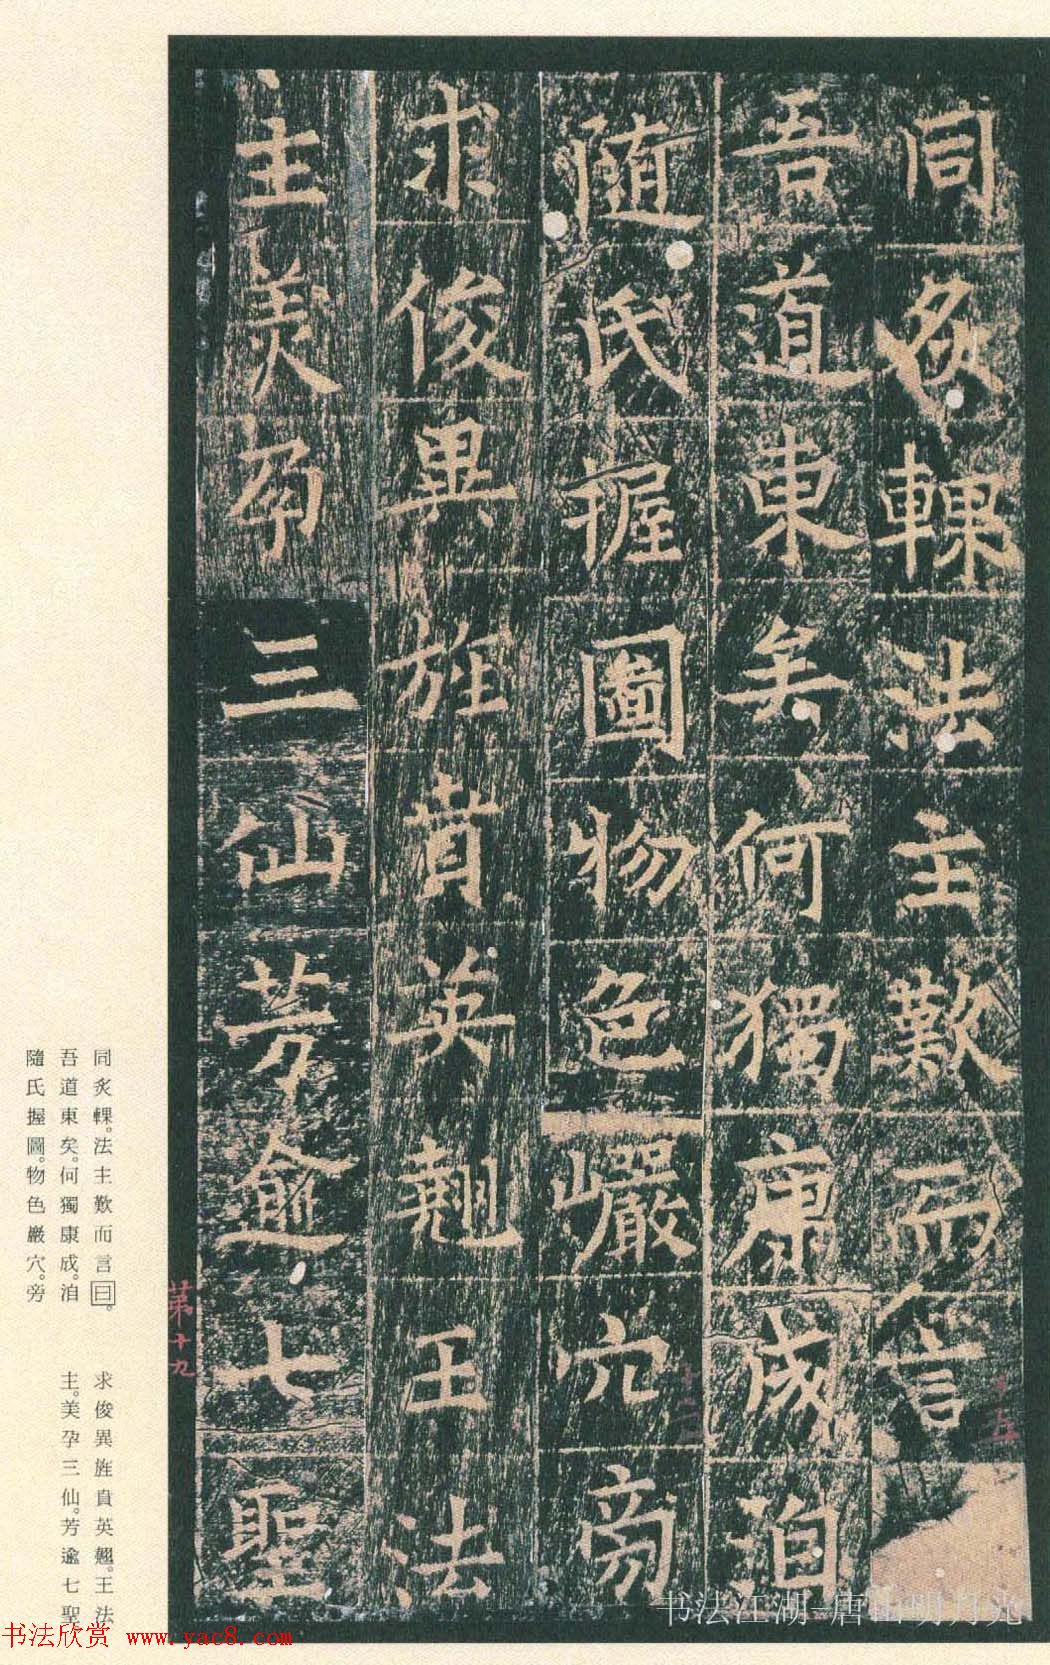 同炙輠法主歎而言
吾道東矣何獨康成洎
随氏握圖物色巖穴旁
求俊異旌賁英翹王法
主美孕三仙芳逾七聖
十五
十六
第十九
同炙輠。法主歎而言曰。
吾道東矣。何獨康成。洎
隨氏握圖。物色巖穴。旁
求俊異旌賁英翹。王法
主。美孕三仙。芳逾七聖。
书法江湖-唐山明月光
书法欣赏 www.yac8.com